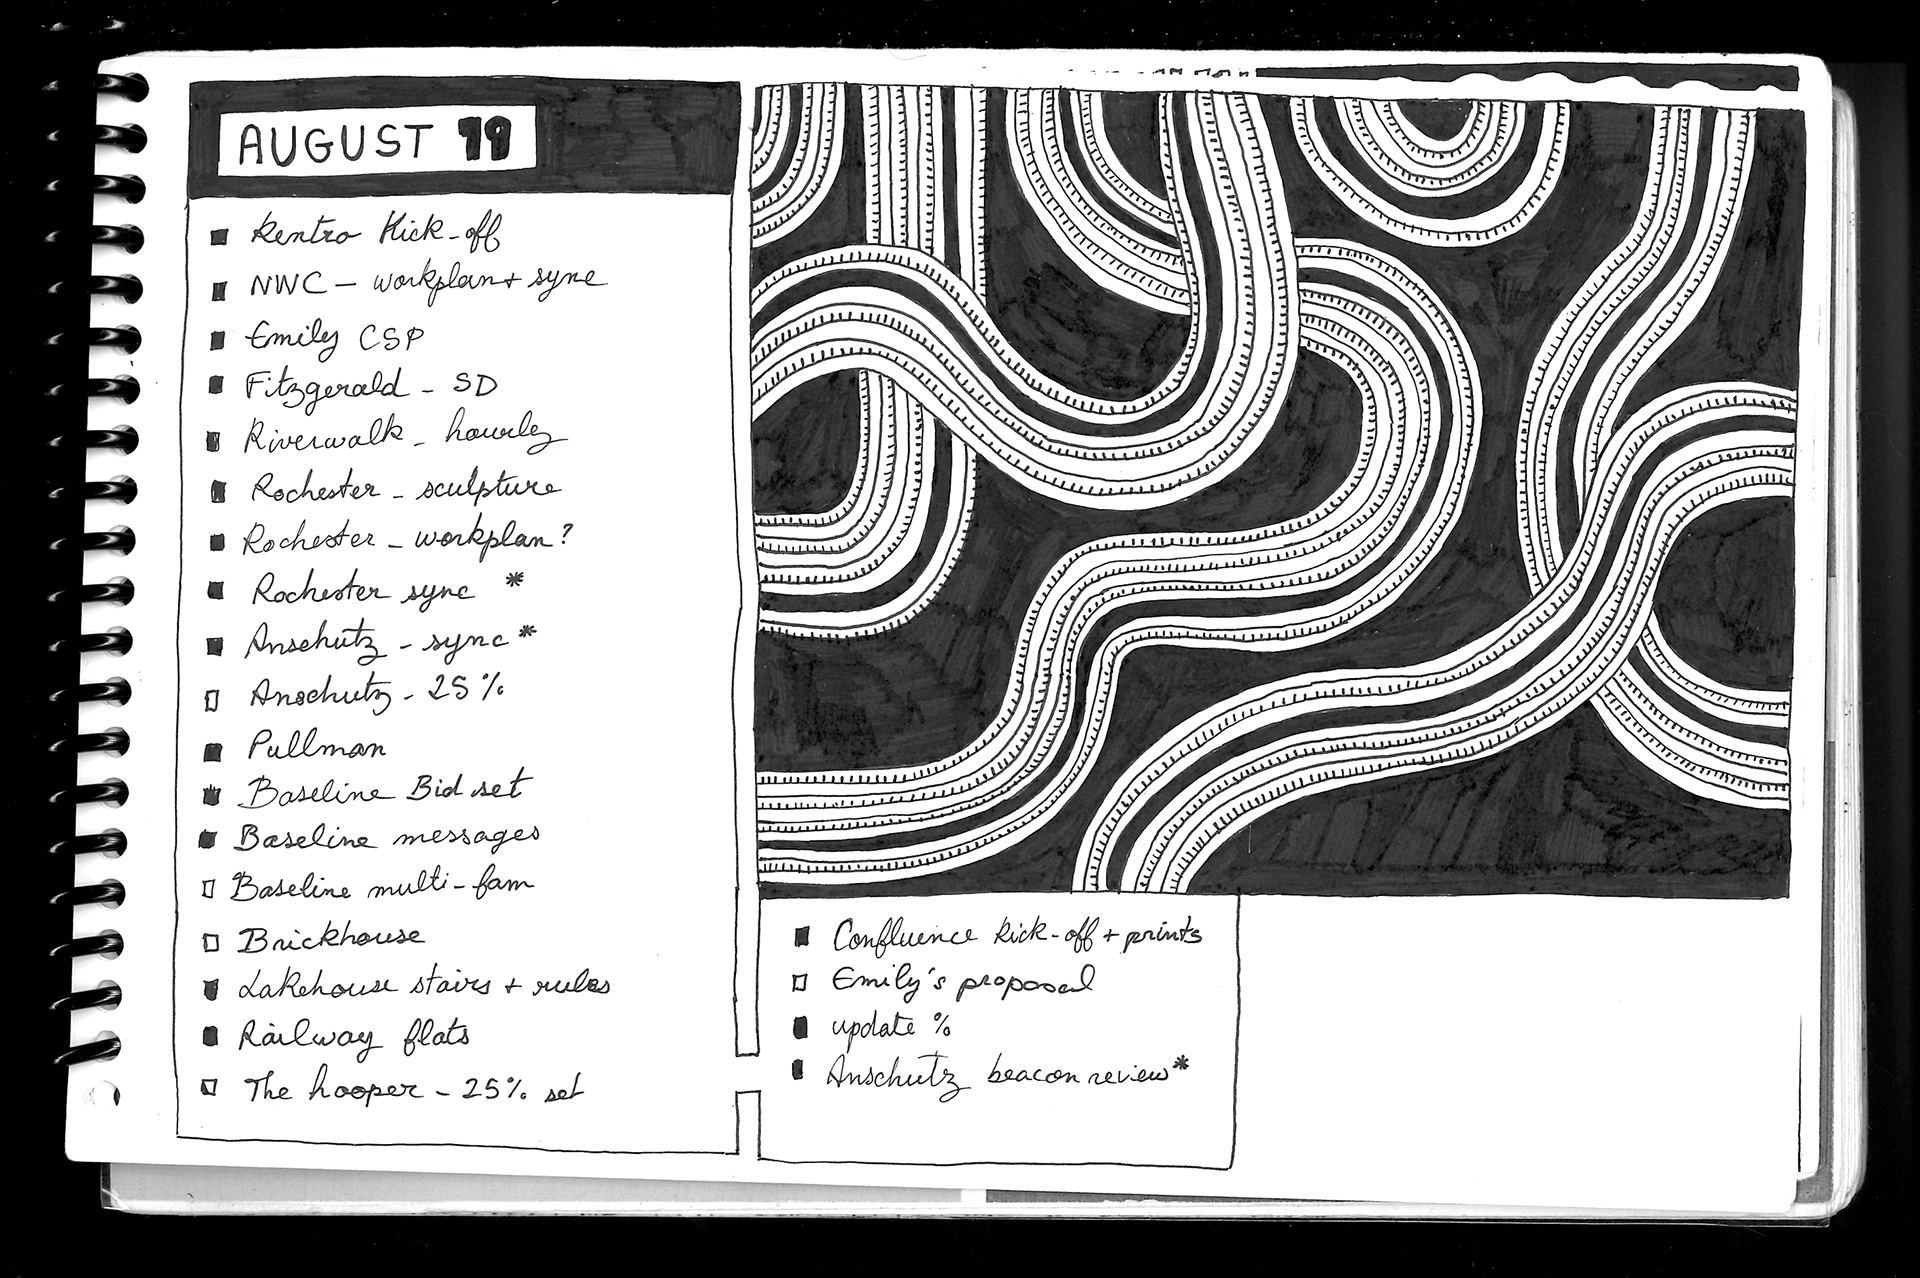 AUGUST 19
Rentro Kick-off
NWC - workplan + sync
Emily CSP
Fitzgerald - SD
Riverwalk - hourly
Rochester - sculpture
Rochester - workplan?
Rochester sync *
Anschutz - sync *
Anschutz - 25%
Pullman
Baseline Bid set
Baseline messages
Baseline multi-fam
Brickhouse
Lakehouse stairs + rules
Railway flats
The hooper - 25% set
Confluence kick-off + prints
Emily's proposal
update %
Anschutz beacon review *